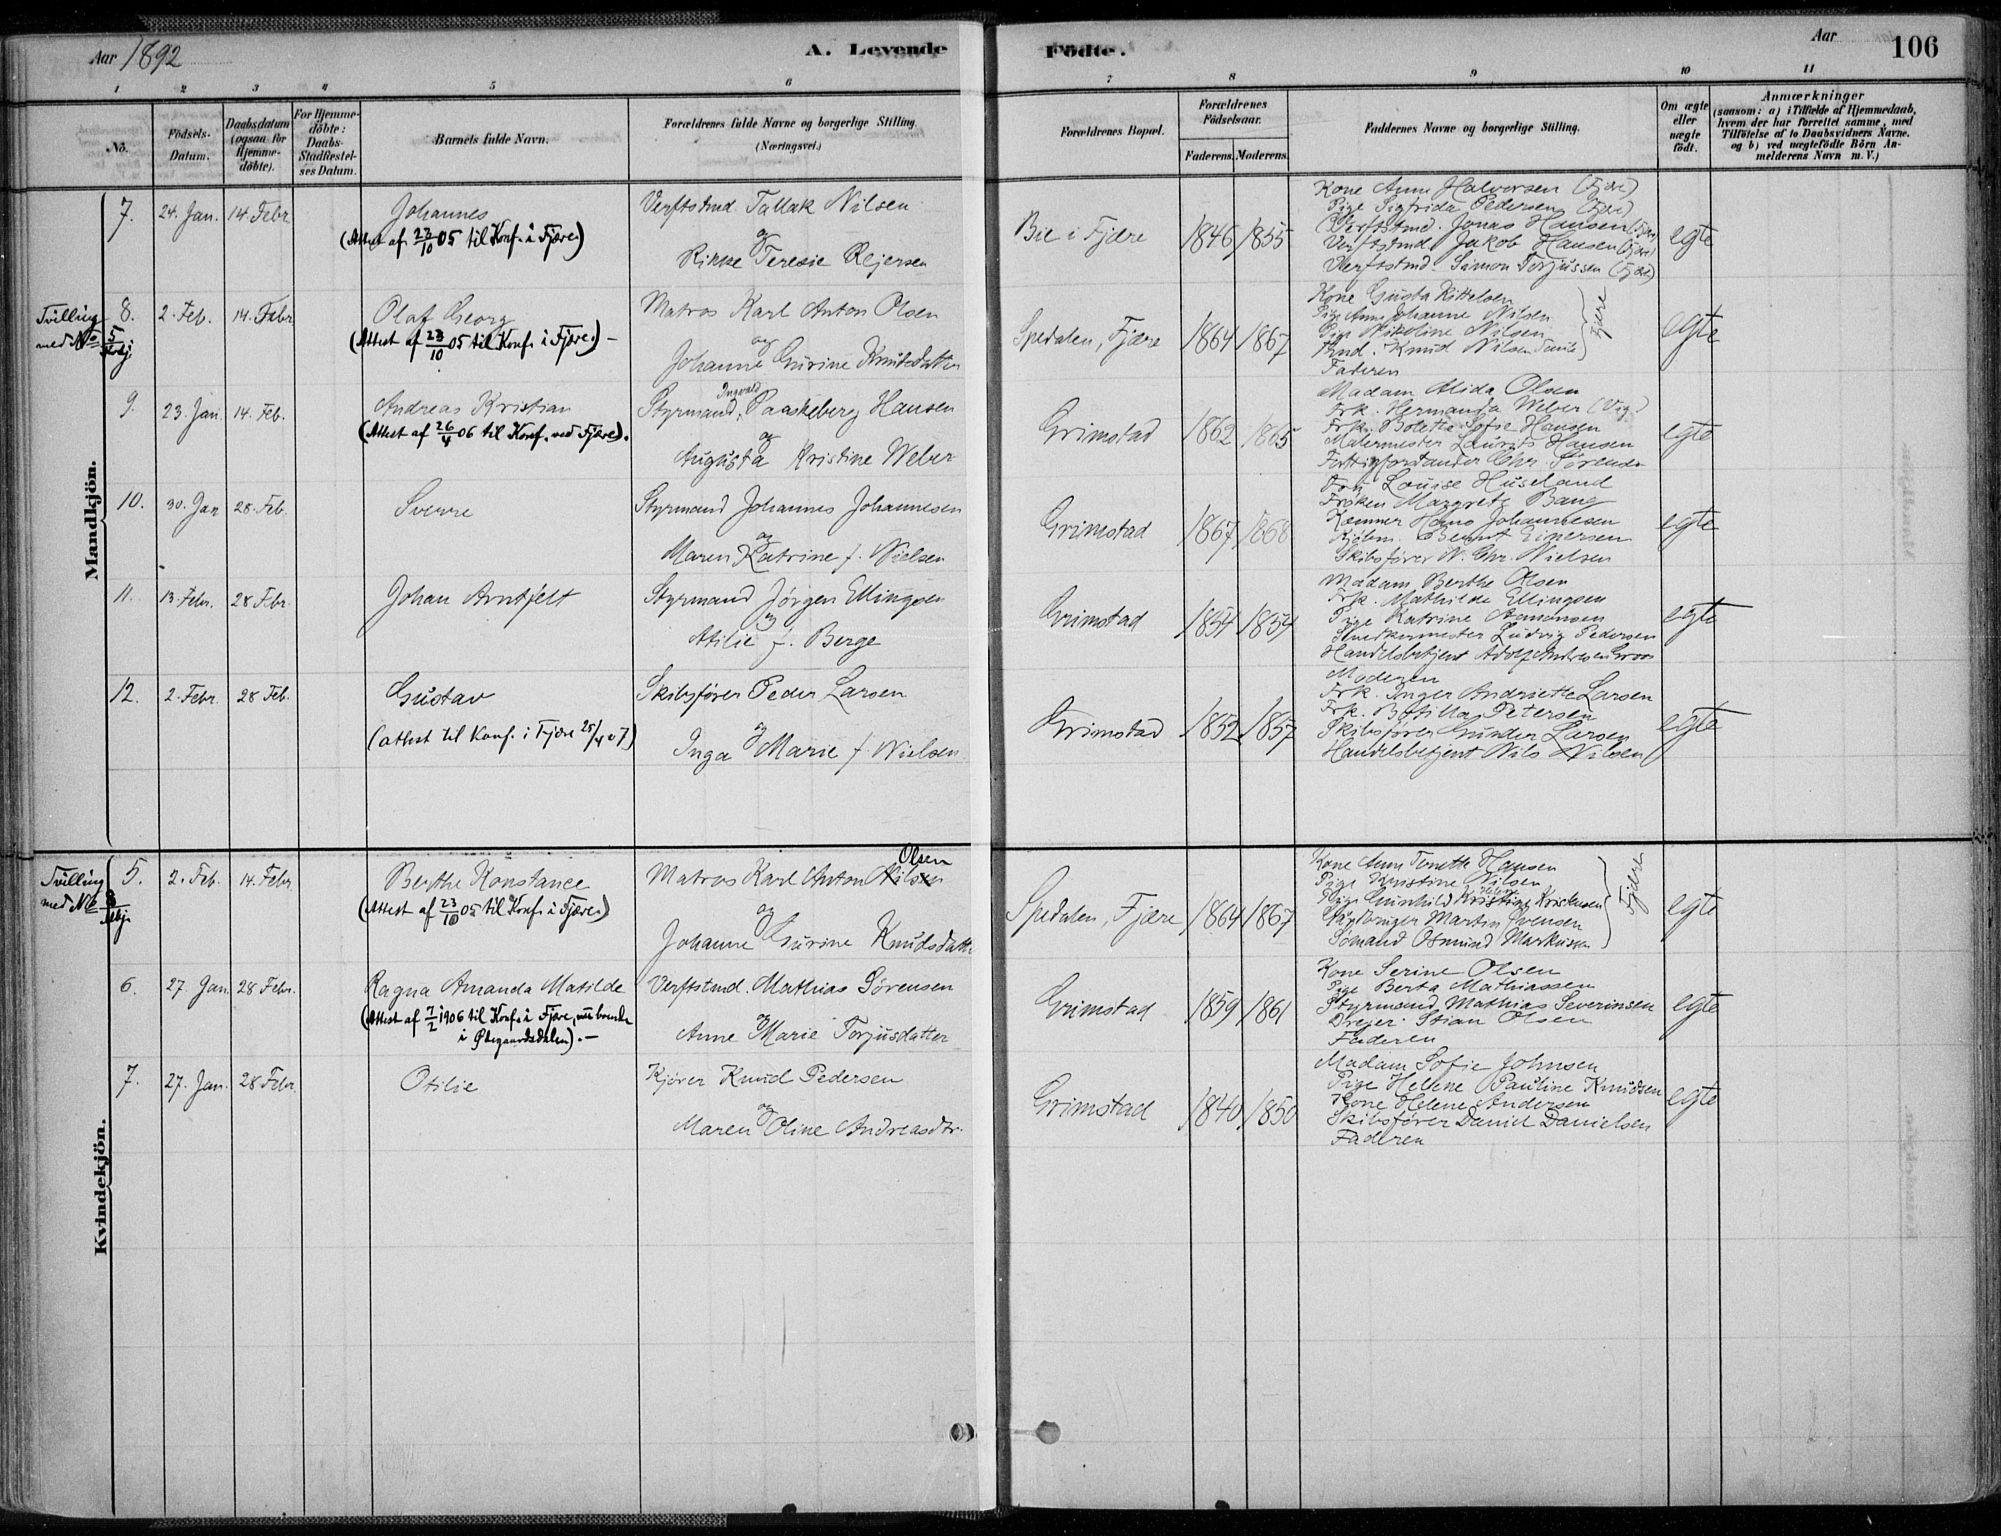 Aar 1892
A. Levende Födte.
Aar
106
1 2 3 4 5 6 7 8 9 10 11
No.
Födsels-Datum.
Daabsdatum (ogsaa for Hjemme-döbte).
For Hjemme-döbte: Daabs-Stadfæstel-ses Datum.
Barnets fulde Navn.
Forældrenes fulde Navne og borgerlige Stilling. (Næringsvei.)
Forældrenes Bopæl.
Forældrenes Födselsaar.
Faderens. Moderens.
Faddernes Navne og borgerlige Stilling.
Om ægte eller uægte födt.
Anmærkninger
(saasom: a) i Tilfælde af Hjemmedaab, hvem der har forrettet samme, med Tilföielse af to Daabsvidners Navne. og b) ved uægtefödte Börn An-melderens Navn m. V.)
Mandkjön.
7. 24. Jan. 14 Febr.
Johannes
(Attest af 23/10 05 til Konf. i Fjære)
Verftstmd. Tallak Nilsen
og
Rikke Teresie Rejersen
Bie i Fjære 1846 1855
Kone Anne Halvorsen (Fjære)
Pige Sigfrida Pedersen (Fjære)
Verftstmd. Jonas Hansen (Fjære)
Verftstmd. Jakob Hansen (Fjære)
Verftstmd. Simon Torjussen (Fjære)
egte
Tvilling med No 5
8. 2. Feb. 14. Febr
Olaf Georg
(Attest af 23/10 05 til Konf. i Fjære) –
Matros Karl Anton Olsen
og
Johanne Gurine Knutsdatter
Spedalen, Fjære 1864 1867
Kone Gusta Kittelsen
Pige Anne Johanne Nilsen
Pige Nikoline Nilsen
Knud Nilsen
Faderen
Fjære
egte
9. 23. Jan. 14. Feb.
Andreas Kristian
(Attest af 26/4 06 til Konf. ved Fjære).
Styrmand Ingvald Paaskeberg Hansen
og
Augusta Kristine Weber
Grimstad 1862 1865
Madam Alida Olsen
Frk. Hermanda Weber
Frk. Bolette Sofie Hansen
Malermester Laurits Hansen
Fattigforstander Chr. Sørensen
egte
10. 30. Jan 28. Feb.
Sverre
Styrmand Johannes Johannesen
og
Maren Katrine f. Nielsen
Grimstad 1867 1868
Fru Louise Huseland
Frøken Margrete Bang
Kæmner Hans Johannesen
Kjøbm. Bernt Einersen
Skibsfører N. Chr. Nielsen
egte
11. 13. Febr. 28 Febr.
Johan Arntfelt
Styrmand Jörgen Ellingsen
og
Atilie f. Berge
Grimstad 1854 1854
Madam Berthe Olsen
Frk. Mathilde Ellingsen
Pige Katrine Osmonsen
Snedkermester Ludvig Pedersen
Handelsbetjent Adolf Andresen Groos
egte
12. 2. Febr. 28 Feb.
Gustav
(attest til Konf. i Fjære 25/4 07)
Skibsfører Peder Larsen
og
Inga Marie f. Nielsen
Grimstad 1852 1857
Moderen
Frk. Inger Andriette Larsen
Frk. Botilla Petersen
Skibsfører Gunder Larsen
Handelsbetjent Nils Nilsen
egte
Kvindekjön.
Tvilling med No 8
5. 2. Feb. 14. Febr
Berthe Konstance
(Attest af 23/10 05 til Konf. i Fjære)
Matros Karl Anton Nilsen Olsen
og
Johanne Gurine Knudsdatter
Spedalen, Fjære 1864 1867
Kone Anne Tonette Hansen
Pige Kristine Nilsen
Pige Gunhild Kristine Kristensen
Gårdbruger Martin Svensen
Sømand Osmund Markussen
Fjære
egte
6. 27. Jan. 28 Febr.
Ragna Amanda Matilde
(Attest af 7/2 1906 til Konf. i Fjære, nu boende
i Øbegaardsdalen). –
Verftstmd. Mathias Sørensen
og
Anne Marie Torjusdatter
Grimstad 1859 1861
Kone Serine Olsen
Pige Berta Mathiassen
Styrmand Mathias Severinsen
Drejer Stian Olsen
Faderen
egte
7. 27. Jan. 28 Febr
Otilie
Kjører Knud Pedersen
og
Maren Oline Andreasdtr.
Grimstad 1840 1850
Madam Sofie Johnsen
Pige Helene Pauline Knudsen
Kone Helene Andersen
Skibsfører Daniel Danielsen
Faderen
egte